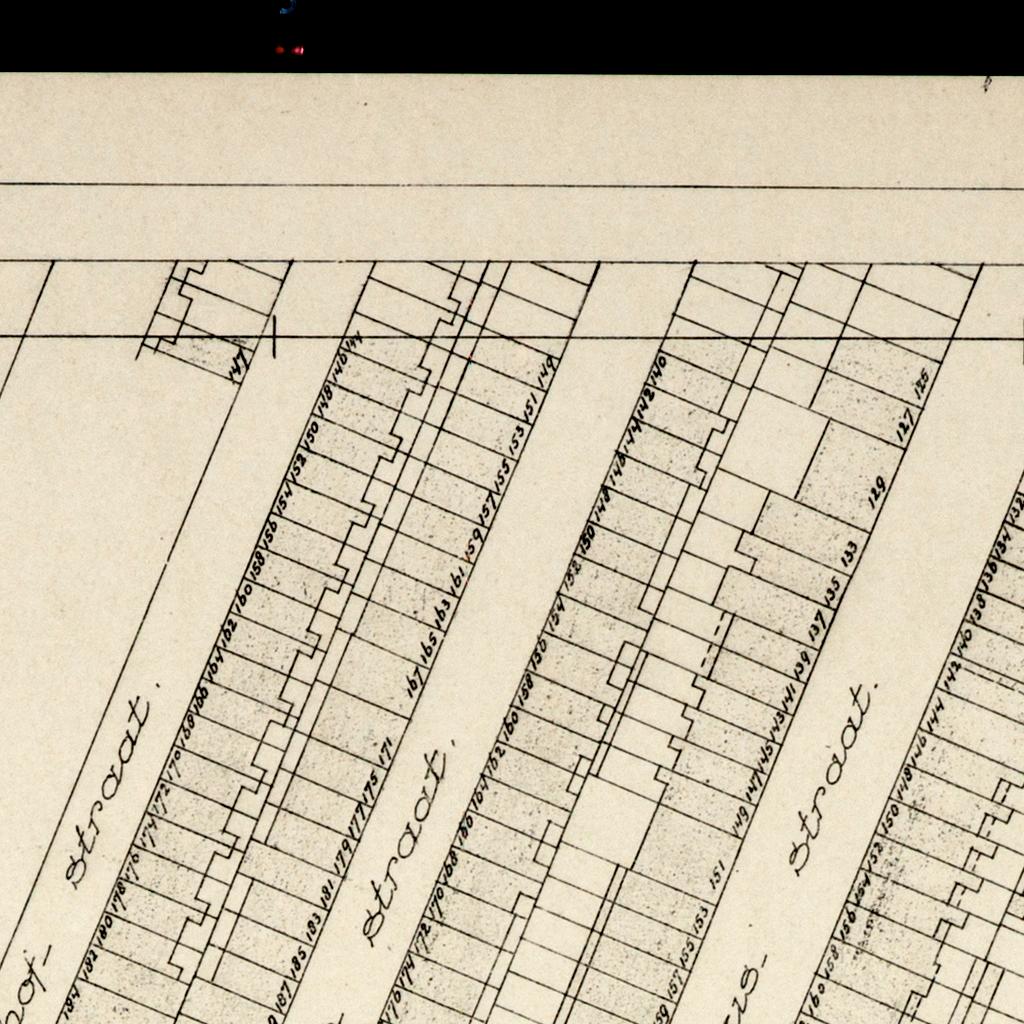 147
144
146
148
150
152
154
156
158
160
162
164
166
168
170
172
174
176
178
180
182
184
149
151
153
155
157
159
161
163
165
167
171
175
177
179
181
183
185
187
140
142
144
146
148
150
152
154
156
158
160
162
164
166
168
170
172
174
176
125
127
129
133
135
137
139
141
143
145
147
149
151
153
155
157
159
132
134
136
138
140
142
144
146
148
150
152
154
156
158
160
Straat.
Straat.
Straat.